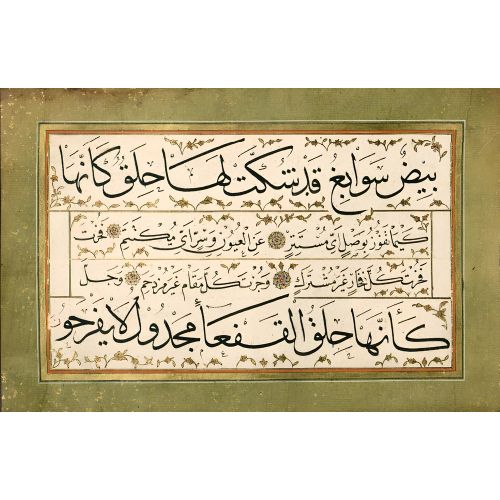 بيضٌ سَوَابغُ قَد شُكَّتْ لهَا حَلَقٌ كَأنّهَا
كَيمَا تَفُوزَ بِوَصْلٍ اَيِّ مُسْتَتِرٍ عَنِ العُيُونِ وَسِرٍّ اَيِّ مُكْتَتِمِ فَحُزْتَ
فَحُزْتَ كُلَّ فَخَارٍ غَيْرَ مُشْتَرَكٍ وَجُزْتَ كُلَّ مَقَامٍ غَيْرَ مُزْدَحَمِ وَجَلَّ
كَأنّهَا حَلَقُ القَفعَأ مَجْدُولُ لا يفرحو